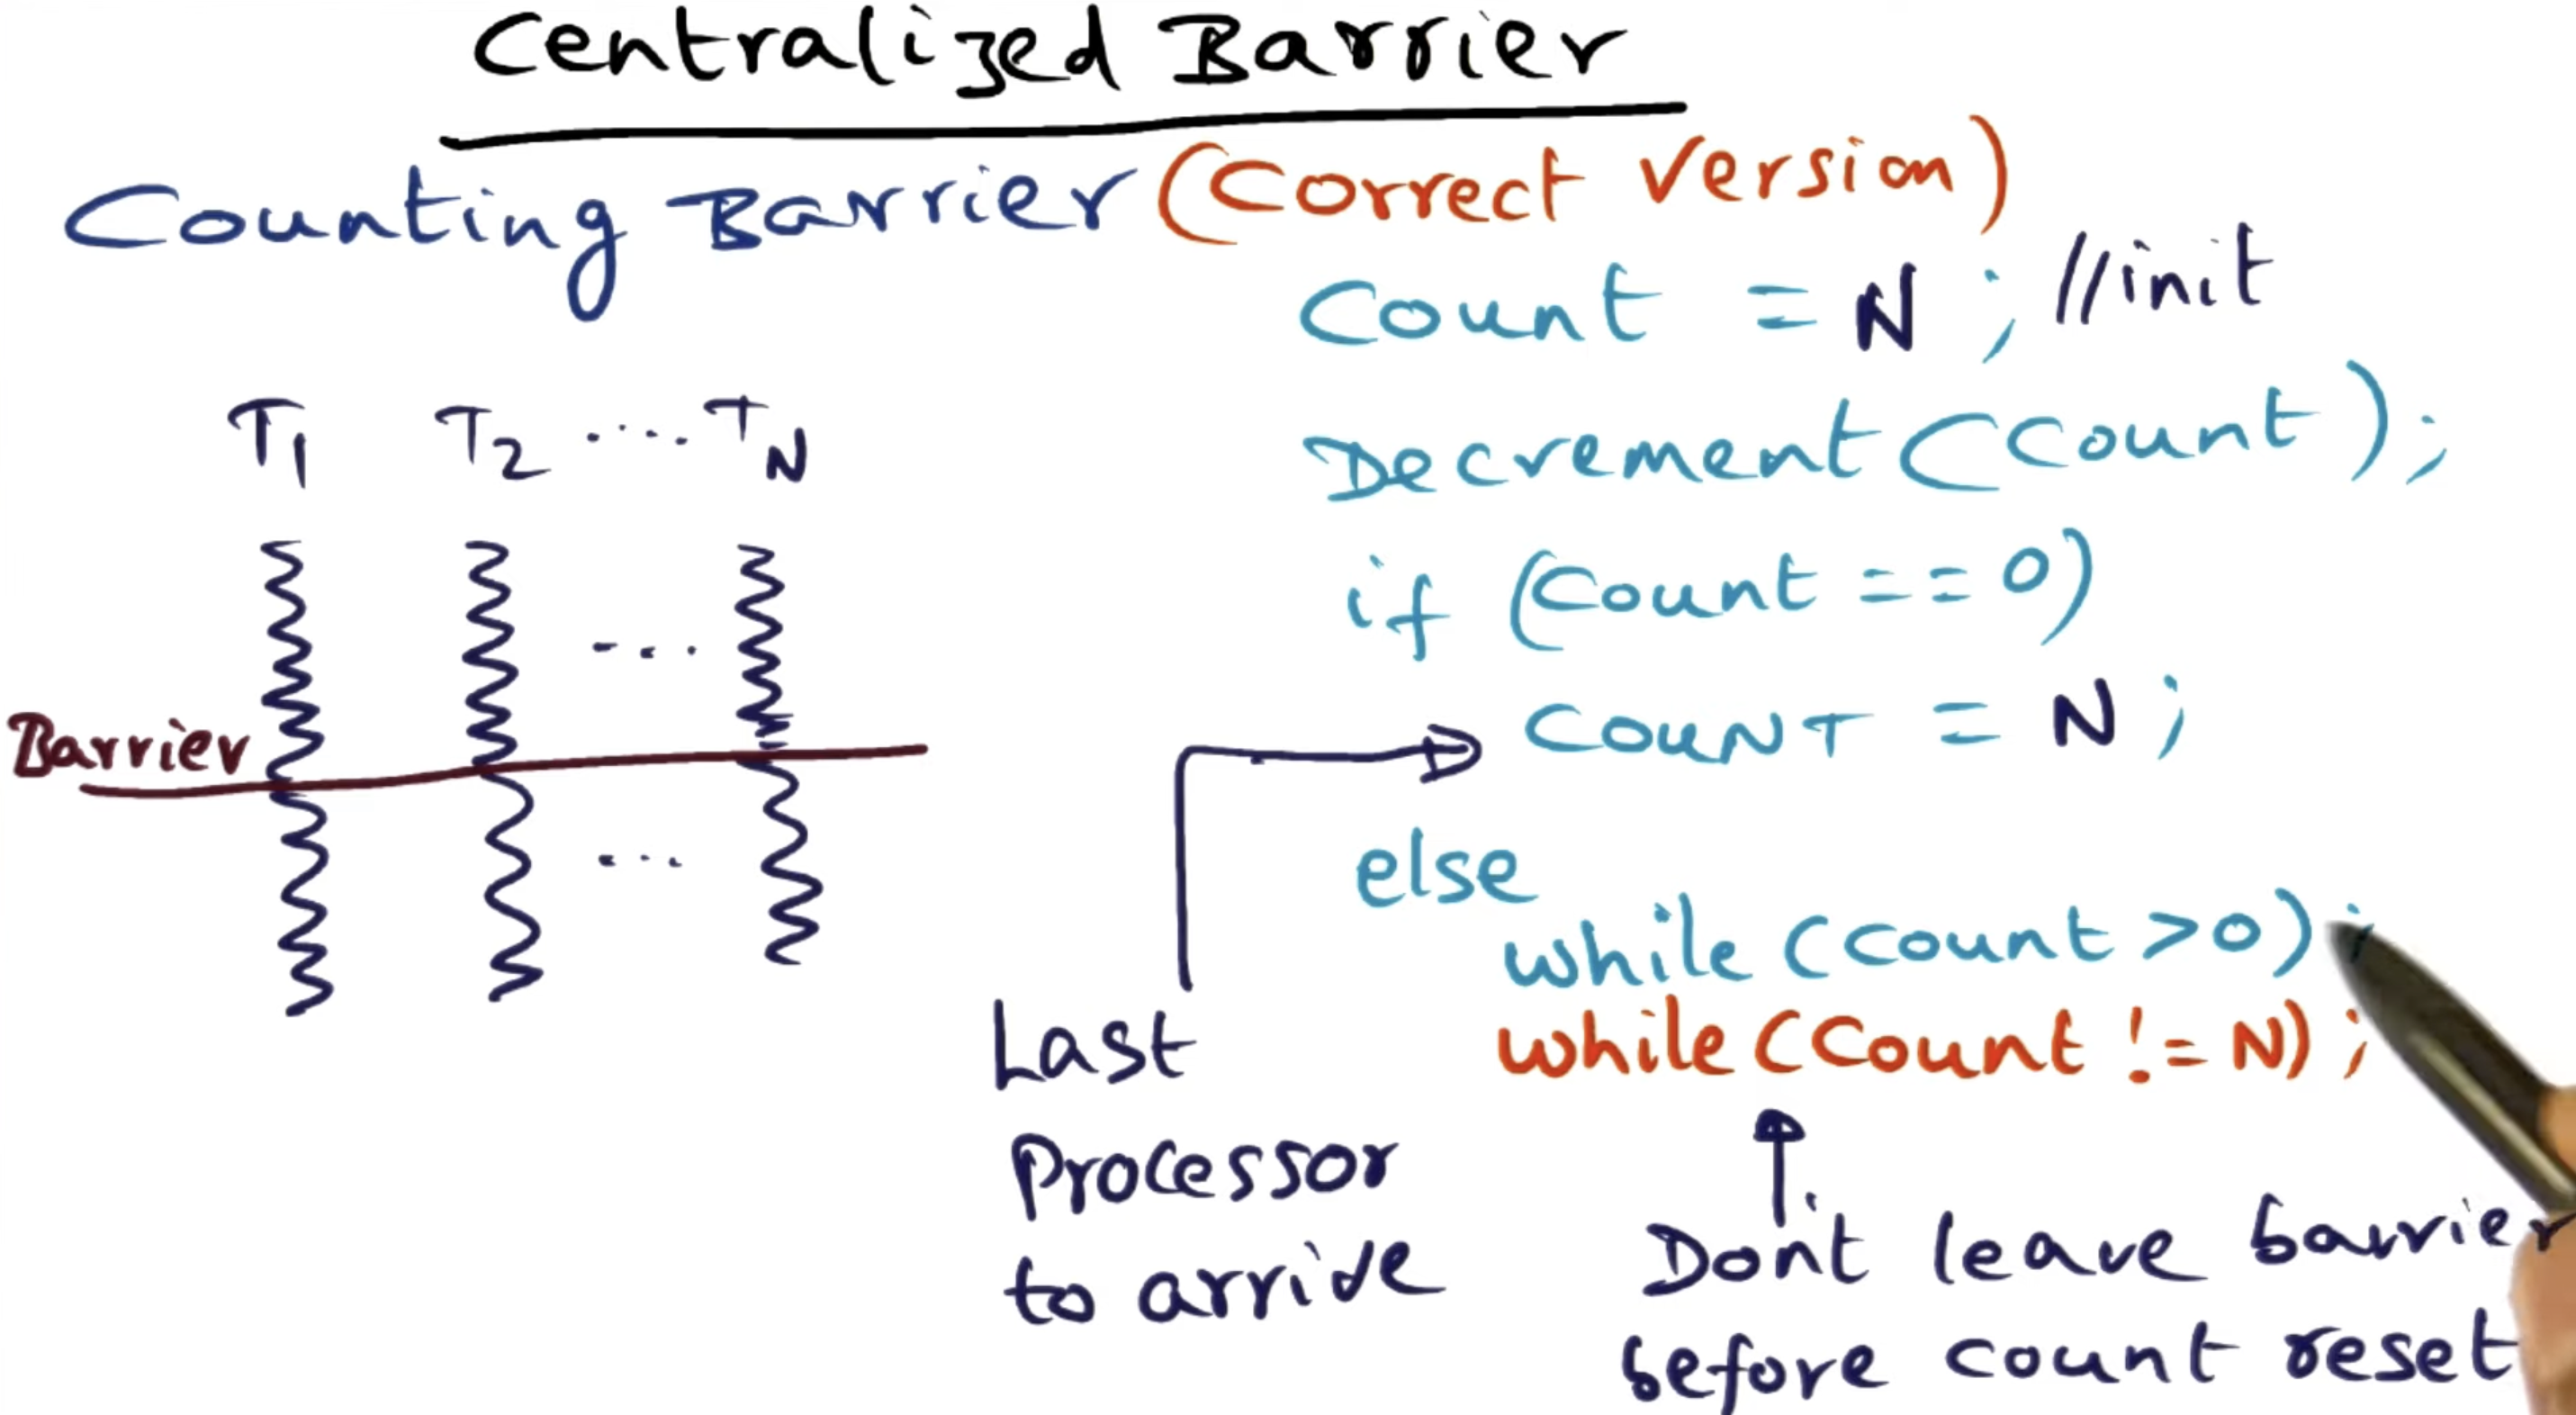 Centralized Barrier
Counting Barrier (Correct version)
Count = N ; //init
Decrement (Count);
if (Count == 0)
COUNT = N ;
else
while (Count > 0) ;
while (Count != N) ;
T1 T2 .... TN
...
Barrier
...
Last
Processor
to arrive
Don't leave barrier
before count reset